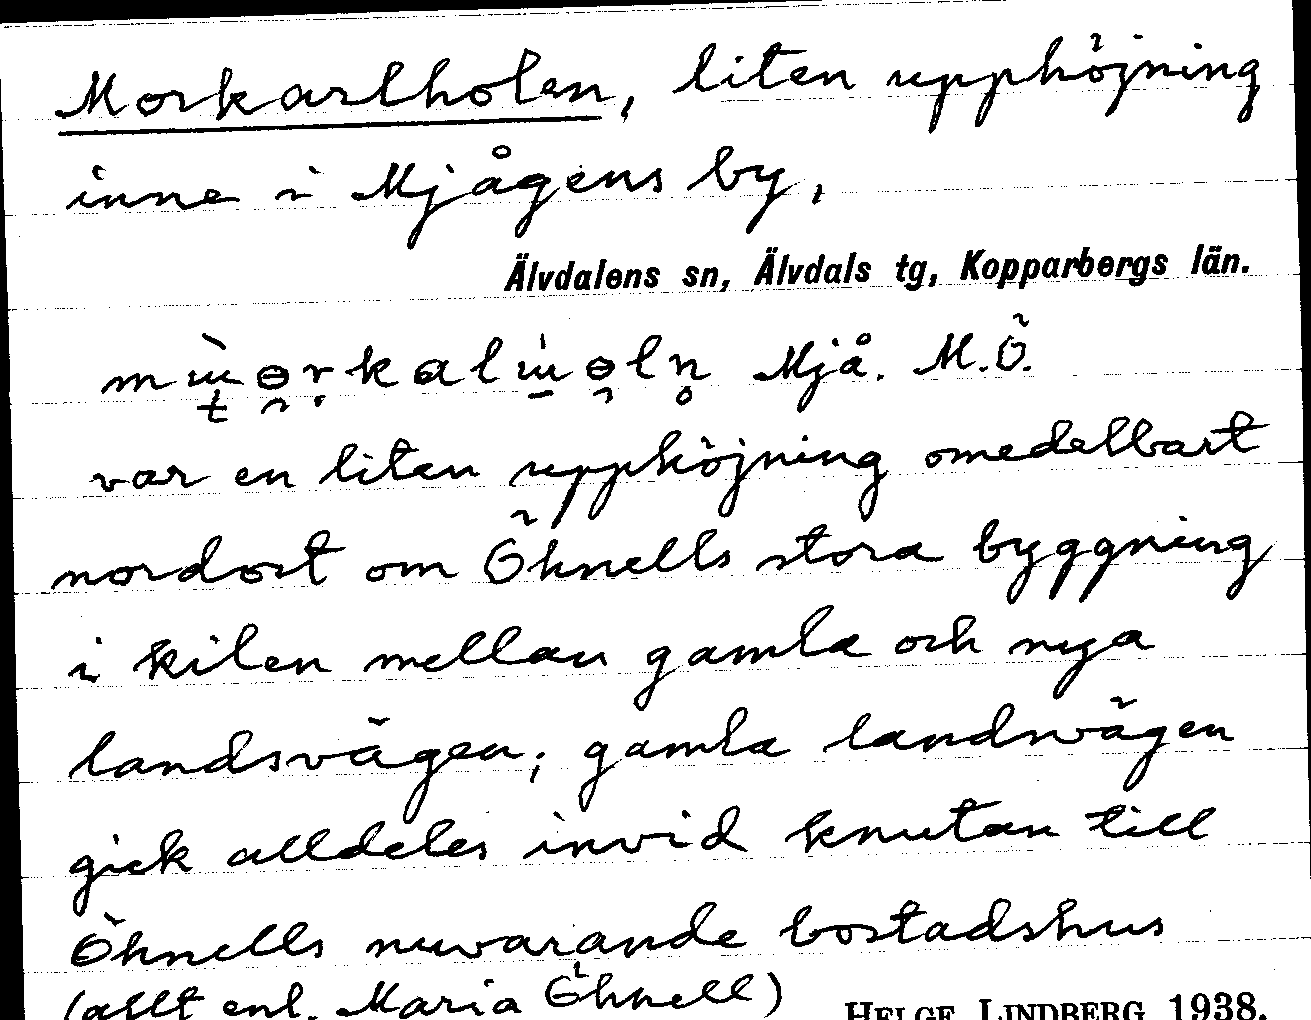 Morkarlholen, liten upphöjning
inne i Mjågens by,
Älvdalens sn, Älvdals tg, Kopparbergs län.
Mjå. M.Ö.
var en liten upphöjning omedelbart
nordost om Öhnells stora byggning
i kilen mellan gamla och nya
landsvägen; gamla landsvägen
gick alldeles invid knutan till
Öhnells nuvarande bostadshus
(allt enl. Maria Öhnell)
HELGE LINDBERG 1938.